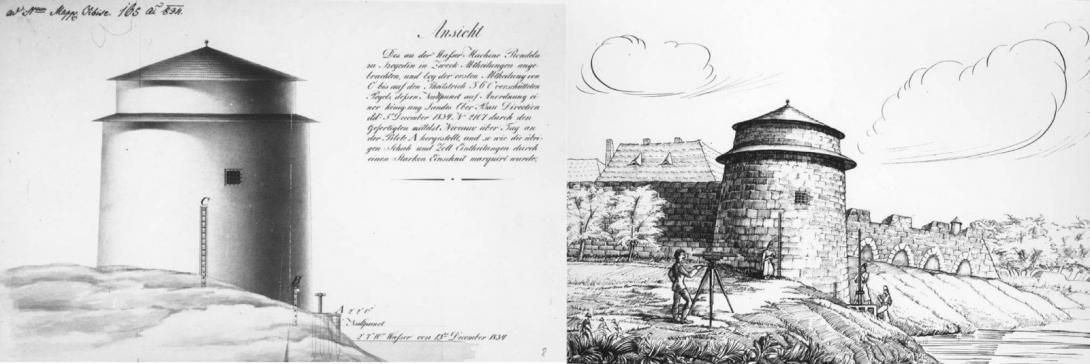 165
Ansicht
Des an der Wasser Machine Rondeln
zu Szegedin in zweck Abtheilungen ange
brachten, und bey der ersten Abtheilung von
C bis auf den Theilstrich 3' 6" C verschütteten
Pegels, dessen Nullpunct auf Anordnung ei
ner königl. ung. Landes Ober Bau Direction
ddt 5t December 1834. No 2167 durch den
Gefertigten mittelst Niveau über Tag an
der Pilote A hergestellt, und so wie die übri
gen Schuh und Zoll Eintheilungen durch
einen Starken Einschnit marquirt wurde.
C
B
A
Nullpunct
Wasser von 13ten December 1834